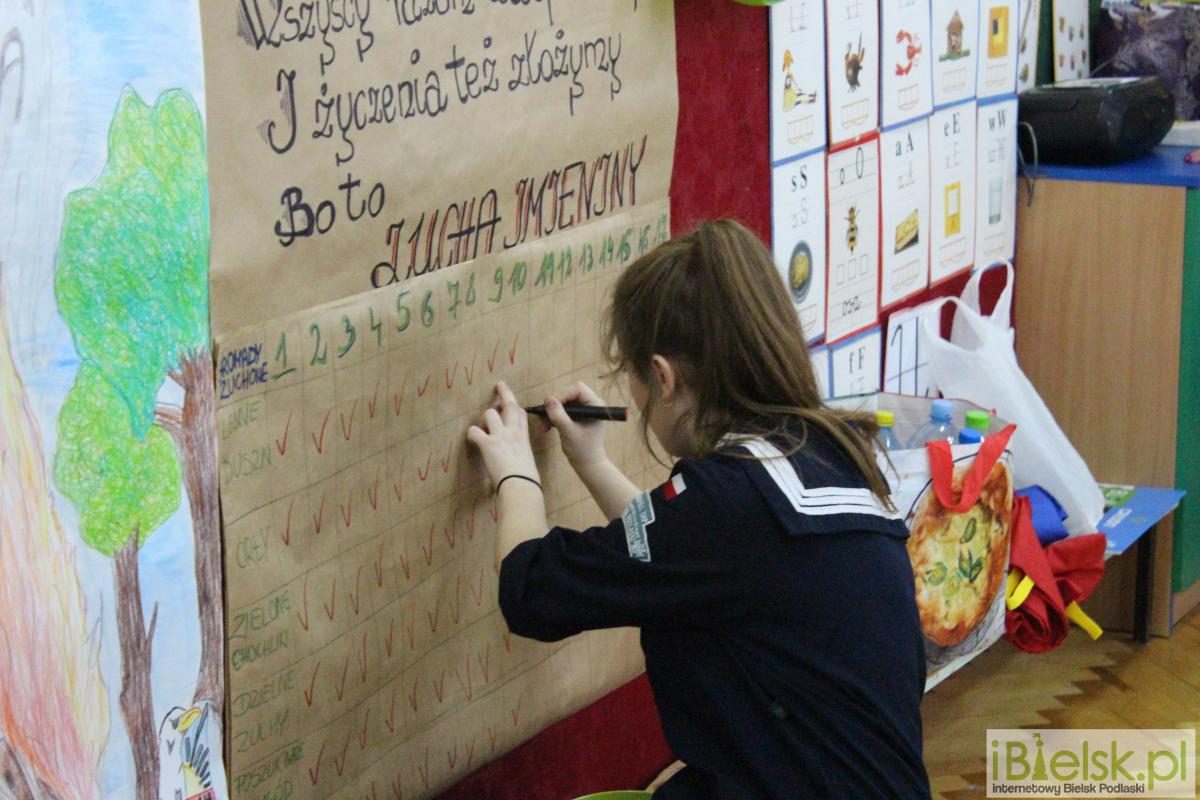 Wszyscy razem
I życzenia też złożymy
Bo to ZUCHA IMIENINY
GROMADY ZUCHOWE 1 2 3 4 5 6 7 8 9 10 11 12 13 14 15 16 17
LEŚNE
DUSZKI
ORŁY
ZIELONE
CHOCHLIKI
DZIELNE
ZUCHY
s S
o O
a A
e E
w W
osa
f F
iBielsk.pl
internetowy Bielsk Podlaski